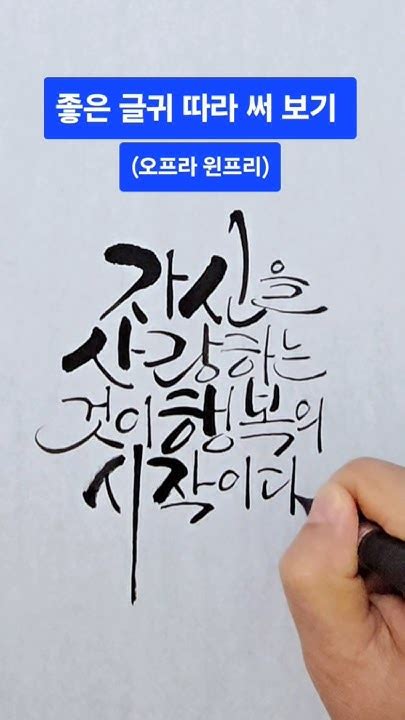 좋은 글귀 따라 써 보기
(오프라 윈프리)
자신을
사랑하는
것이 행복의
시작이다